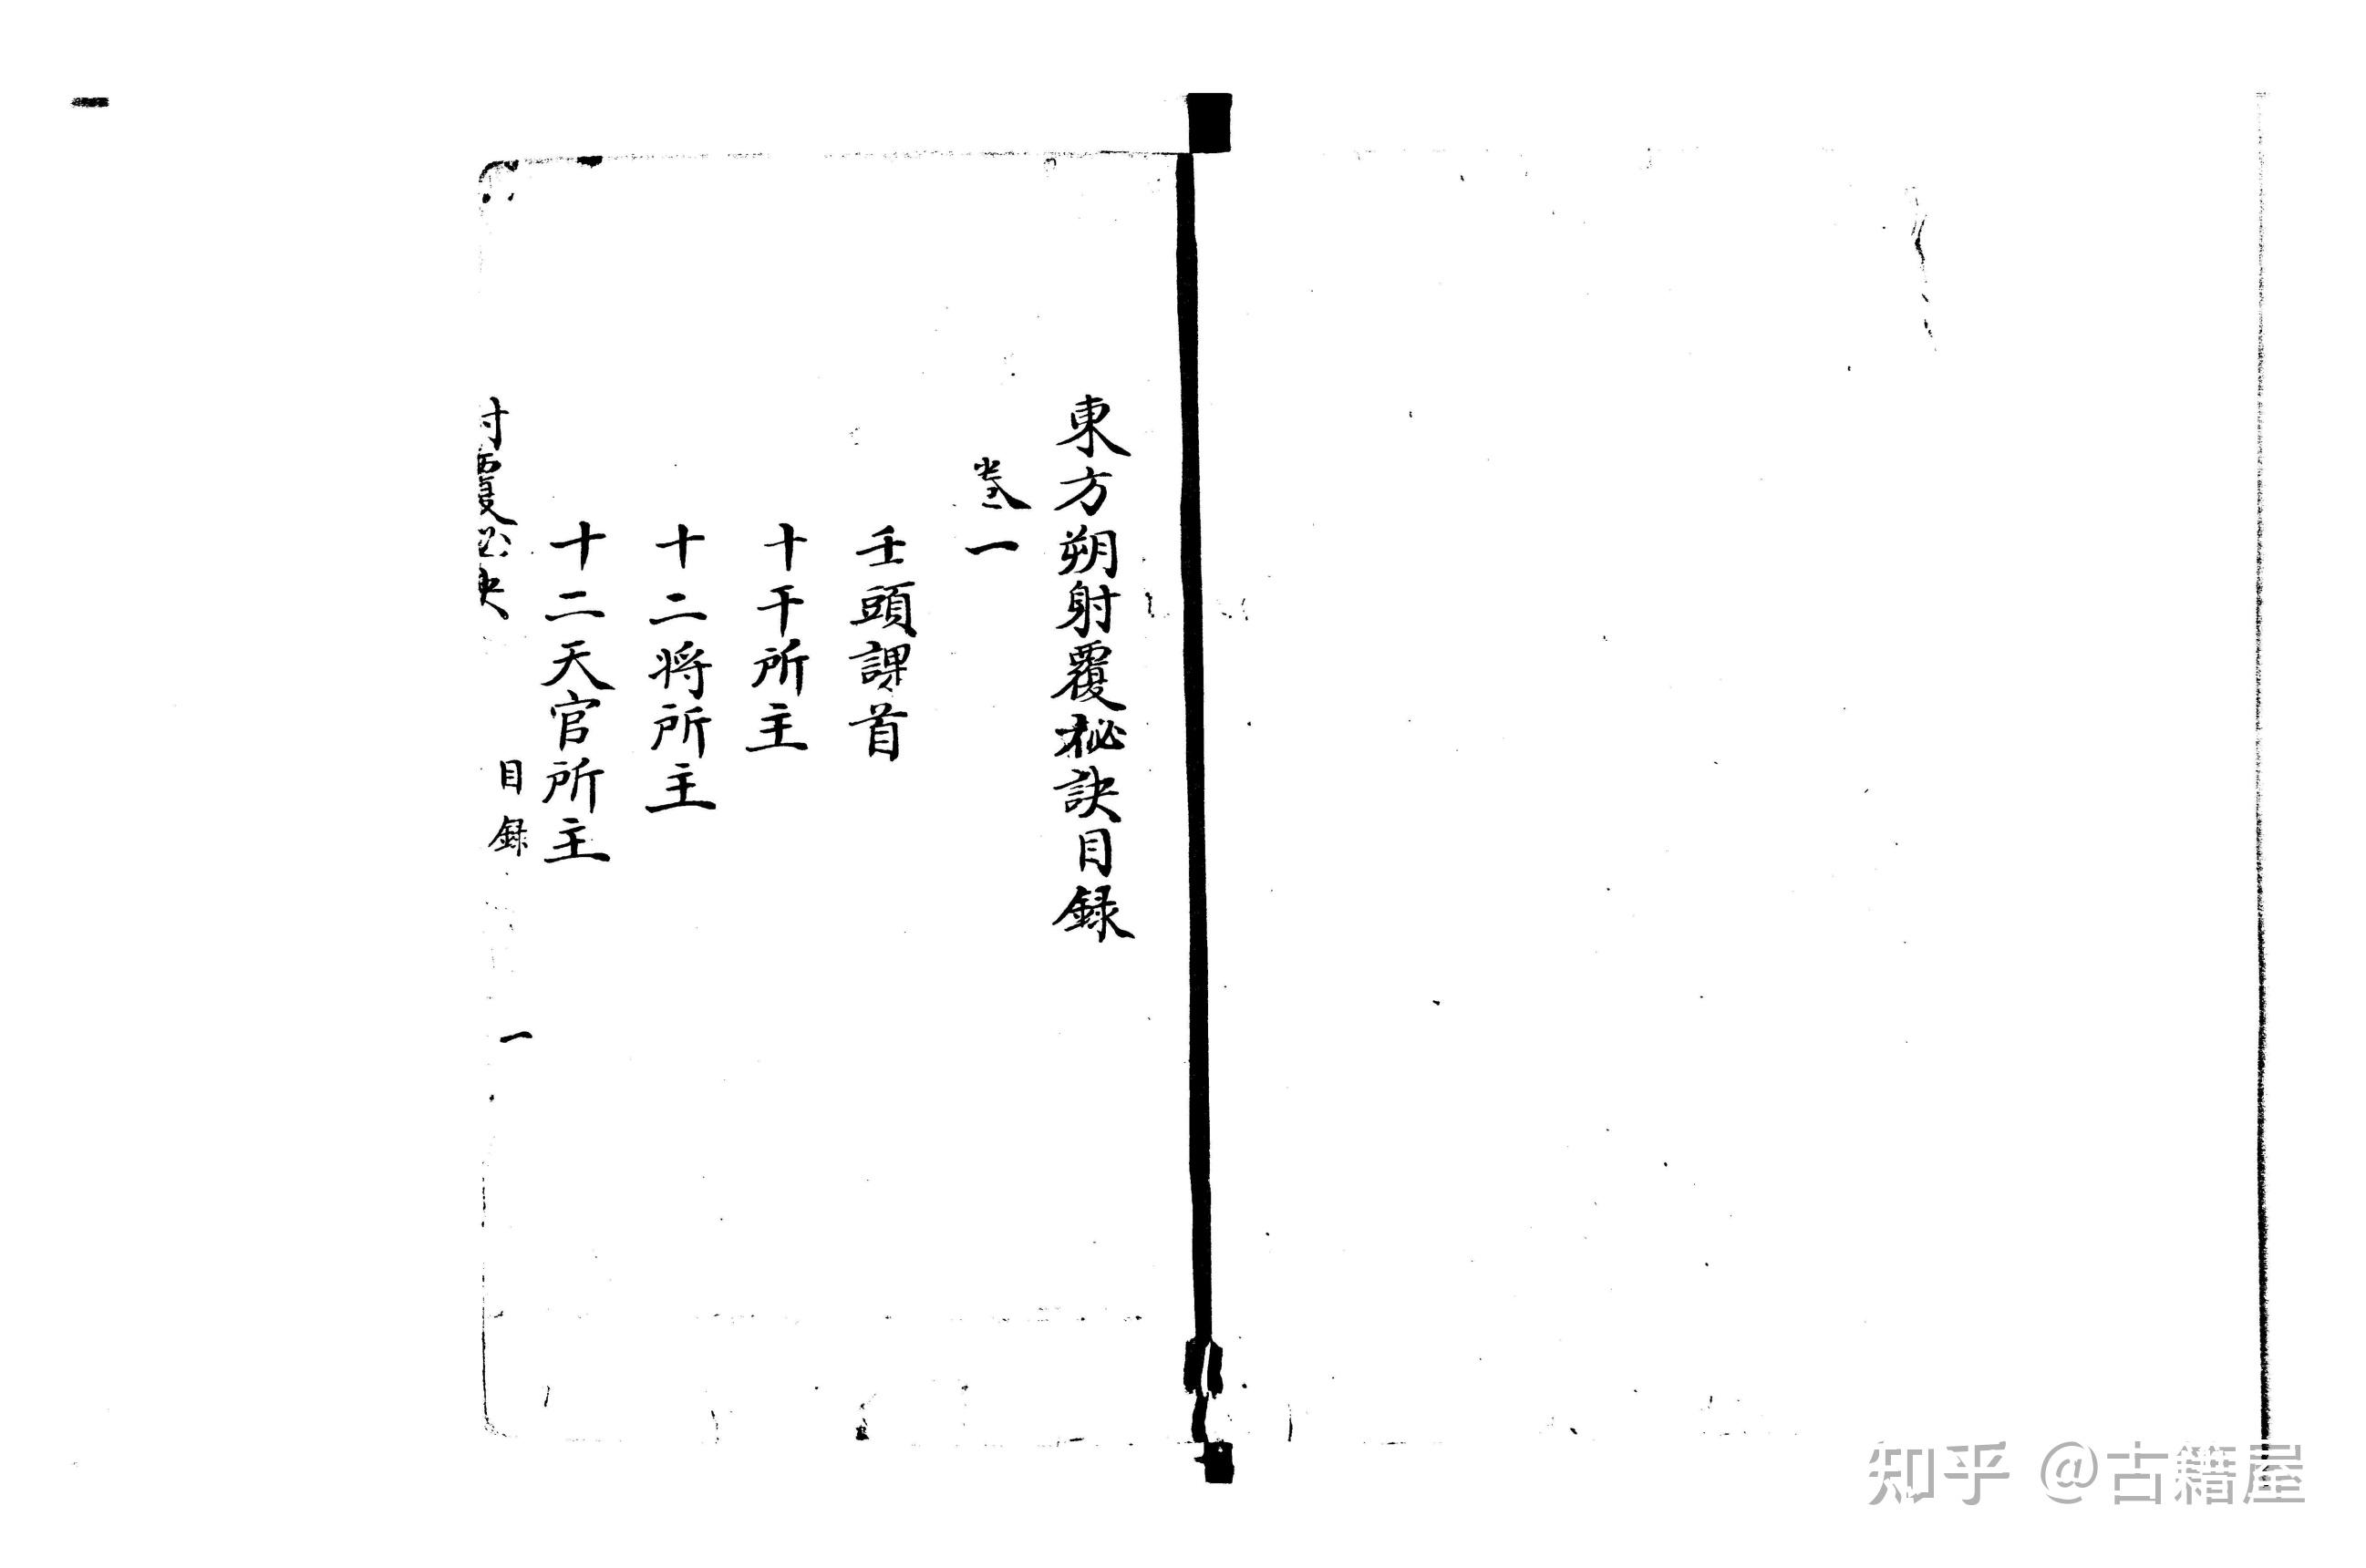 東方朔射覆祕訣目録
卷一
壬頭課首
十干所主
十二将所主
十二天官所主
射覆祕訣 目録 一
知乎 @古籍屋